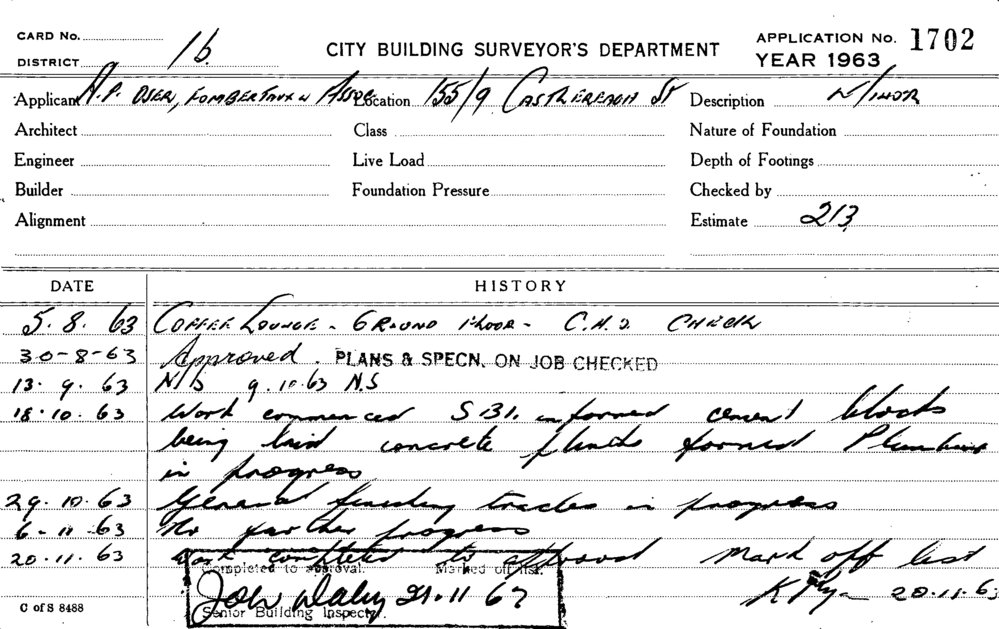 CARD No.
DISTRICT 1b
CITY BUILDING SURVEYOR'S DEPARTMENT
APPLICATION No. 1702
YEAR 1963
Applicant A.P. OSER, FOMBERTAUX & ASSOC Location 155/9 CASTLEREAGH ST Description MINOR
Architect Class Nature of Foundation
Engineer Live Load Depth of Footings
Builder Foundation Pressure Checked by
Alignment Estimate 213
DATE HISTORY
5.8.63 COFFEE LOUNGE - GROUND FLOOR - CHECK
30-8-63 Approved. PLANS & SPECN. ON JOB CHECKED
13.9.63 N/S 9.10.63 N.S
18.10.63 Work commenced S 131. informed cement blocks
being laid concrete formed Plumbing
in progress
29.10.63 General finishing trades in progress
6-11-63 No further progress
20.11.63 Work completed to approval Mark off list
Completed to approval. Marked off list.
John 21.11.63
Senior Building Inspector.
20.11.63
C of S 8488